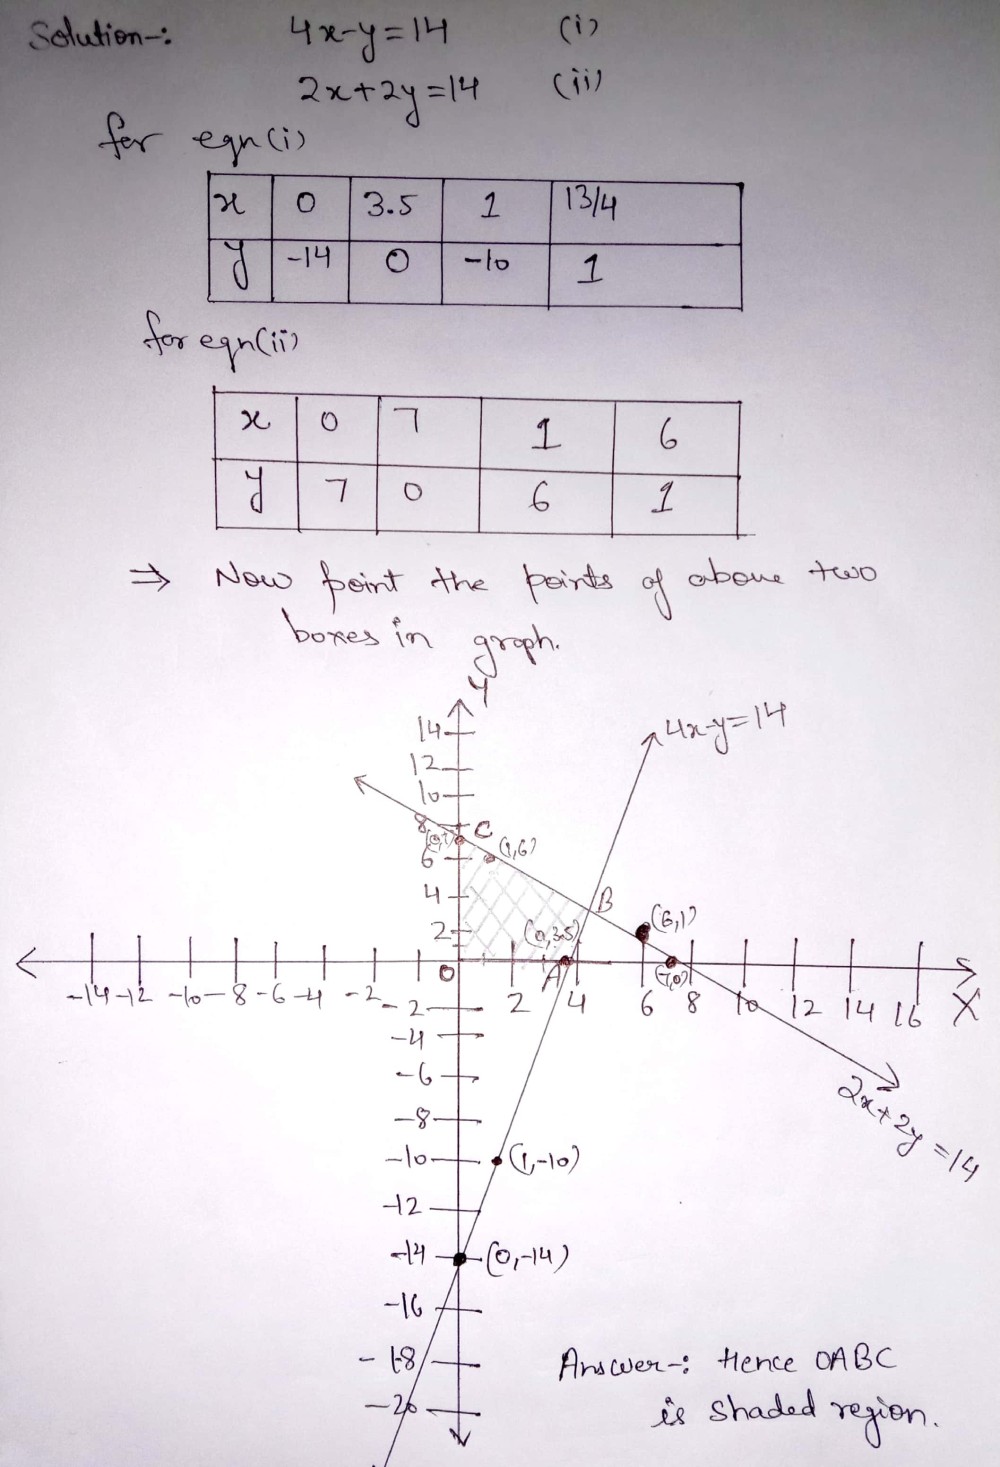 Solution-: 4x-y=14 (i)
2x+2y=14 (ii)
for eqn(i)
x 0 3.5 1 13/4
y -14 0 -10 1
for eqn(ii)
x 0 7 1 6
y 7 0 6 1
⇒ Now point the points of above two
boxes in graph.
Y
14
4x-y=14
12
10
8
C
(0,7)
(1,6)
6
4
B
(6,1)
2
(0,3.5)
O
A
(7,0)
-14 -12 -10 -8 -6 -4 -2
2 4 6 8 10 12 14 16 X
-2
-4
-6
-8
2x+2y=14
-10
(1,-10)
-12
-14
(0,-14)
-16
-18
-20
Answer-: Hence OABC
is shaded region.